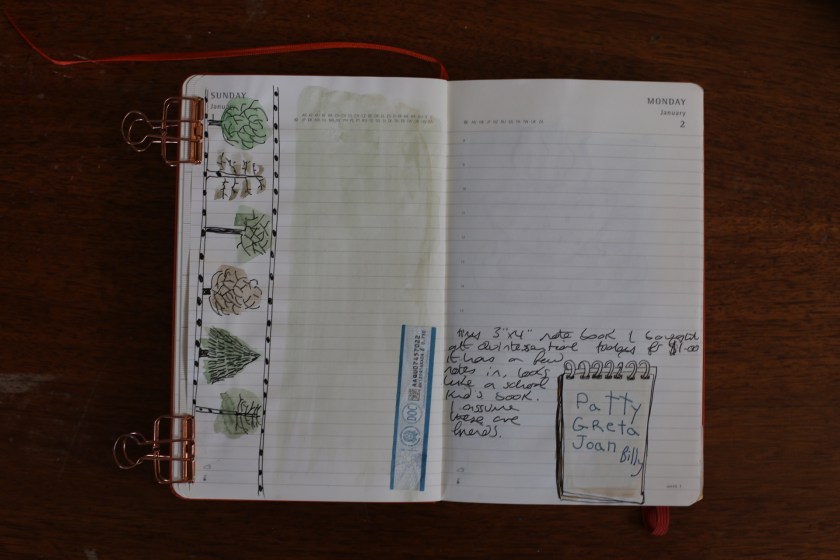 SUNDAY
January
MONDAY
January
2
this 3"x4" note book I bought
at Quintessential for $1.00
it has a few
notes in, looks
like a school
kid's book.
I assume
these are
friends.
Patty
Greta
Joan
Billy
DOC